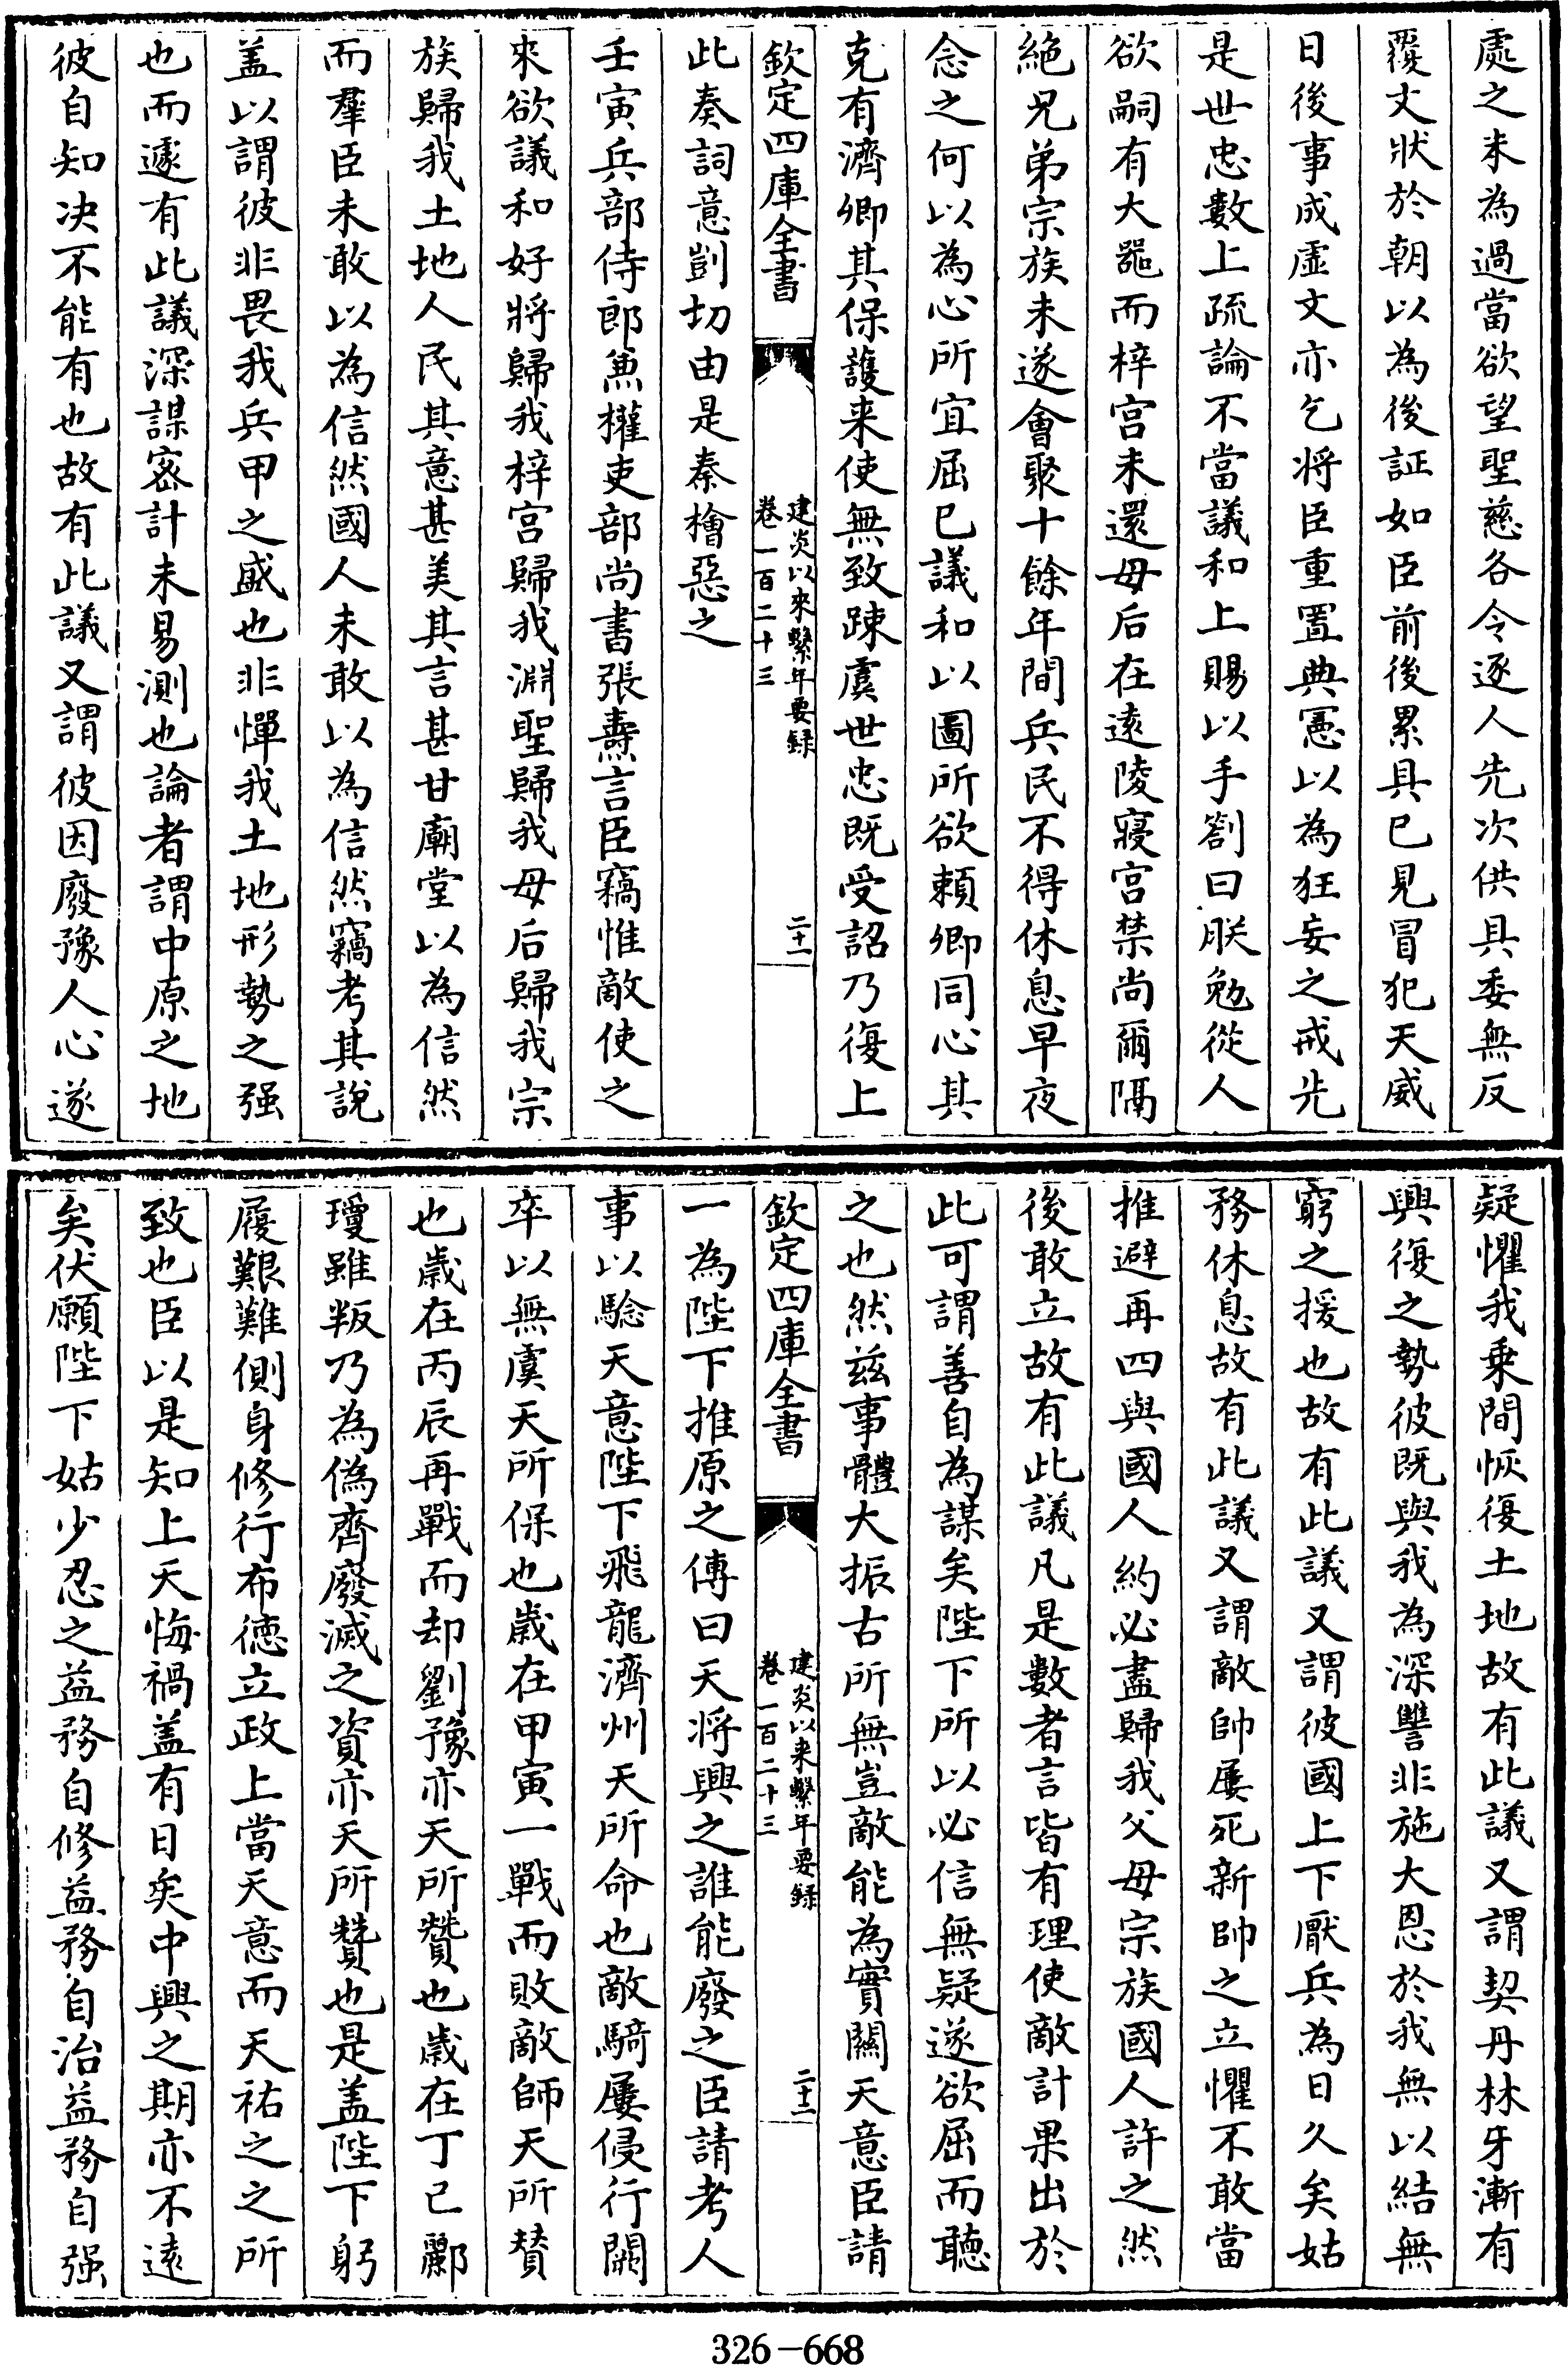 處之未為過當欲望聖慈各令逐人先次供具委無反
覆文狀於朝以為後証如臣前後累具已見冒犯天威
日後事成虛文亦乞將臣重置典憲以為狂妄之戒先
是世忠數上疏論不當議和上賜以手劄曰朕勉從人
欲嗣有大器而梓宮未還母后在遠陵寢宮禁尚爾隔
絕兄弟宗族未遂會聚十餘年間兵民不得休息早夜
念之何以為心所宜屈已議和以圖所欲賴卿同心其
克有濟卿其保護来使無致踈虞世忠既受詔乃復上
欽定四庫全書
建炎以來繫年要錄
卷一百二十三
二十一
此奏詞意剴切由是秦檜惡之
壬寅兵部侍郎兼權吏部尚書張燾言臣竊惟敵使之
來欲議和好將歸我梓宮歸我淵聖歸我母后歸我宗
族歸我土地人民其意甚美其言甚甘廟堂以為信然
而羣臣未敢以為信然國人未敢以為信然竊考其說
盖以謂彼非畏我兵甲之盛也非憚我土地形勢之强
也而遽有此議深謀宻計未易測也論者謂中原之地
彼自知决不能有也故有此議又謂彼因廢豫人心遂
疑懼我乗間恢復土地故有此議又謂契丹林牙漸有
興復之勢彼既與我為深讐非施大恩於我無以結無
窮之援也故有此議又謂彼國上下厭兵為日久矣姑
務休息故有此議又謂敵帥屢死新帥之立懼不敢當
推避再四與國人約必盡歸我父母宗族國人許之然
後敢立故有此議凡是數者言皆有理使敵計果出於
此可謂善自為謀矣陛下所以必信無疑遂欲屈而聽
之也然兹事體大振古所無豈敵能為實關天意臣請
欽定四庫全書
建炎以来繫年要錄
卷一百二十三
二十二
一為陛下推原之傳曰天将興之誰能廢之臣請考人
事以騐天意陛下飛龍濟州天所命也敵騎屢侵行闕
卒以無虞天所保也歳在甲寅一戰而敗敵師天所賛
也歳在丙辰再戰而却劉豫亦天所贊也歳在丁已酈
瓊雖叛乃為偽齊廢滅之資亦天所贊也是盖陛下躬
履艱難側身修行布徳立政上當天意而天祐之之所
致也臣以是知上天悔禍盖有日矣中興之期亦不遠
矣伏願陛下姑少忍之益務自修益務自治益務自强
326-668